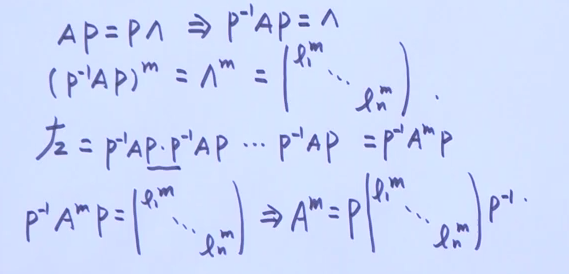 AP=PΛ ⇒ P⁻¹AP=Λ
(P⁻¹AP)ᵐ = Λᵐ = (l₁ᵐ ⋱ lₙᵐ).
左 = P⁻¹AP·P⁻¹AP ⋯ P⁻¹AP = P⁻¹AᵐP
P⁻¹AᵐP = (l₁ᵐ ⋱ lₙᵐ) ⇒ Aᵐ = P(l₁ᵐ ⋱ lₙᵐ)P⁻¹.